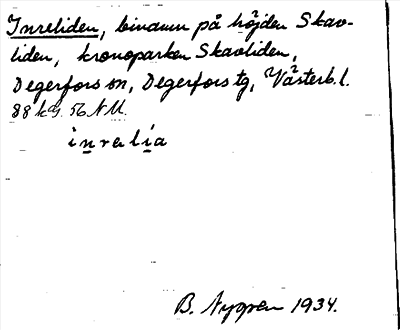 Inreliden, binamn på höjden Skav-
liden, kronoparken Skavliden,
Degerfors sn, Degerfors tg, Västerb. l.
88 kg. 56 N M.
inralia
B. Nygren 1934.